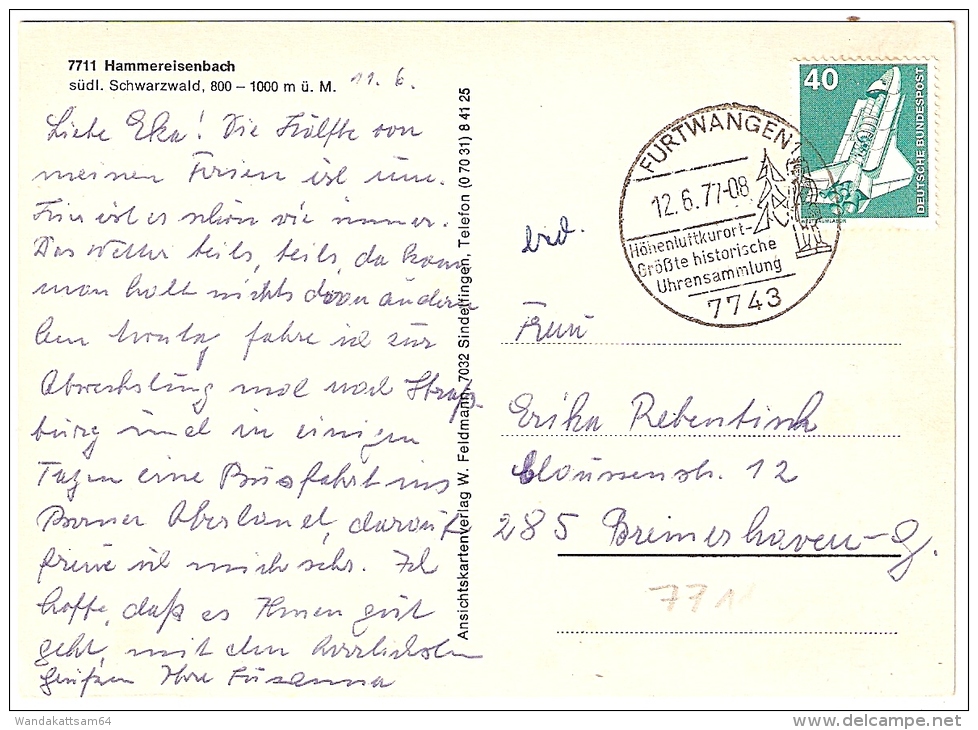 7711 Hammereisenbach
südl. Schwarzwald, 800 – 1000 m ü. M.
11. 6.
Liebe Eka! Die Hälfte von
meinen Ferien ist um.
Hier ist es schön wie immer.
Das Wetter teils, teils, da kann
man halt nichts dran ändern
Am Montag fahre ich zur
Abwechslung mal nach Straß-
burg und in einigen
Tagen eine Busfahrt ins
Berner Oberland, darauf
freue ich mich sehr. Ich
hoffe, daß es Ihnen gut
geht, mit den herzlichsten
Grüßen Ihre Susanna
Ansichtskartenverlag W. Feldmann, 7032 Sindelfingen, Telefon (0 70 31) 8 41 25
FURTWANGEN 1
12.6.77-08
Höhenluftkurort-
Größte historische
Uhrensammlung
7743
40
DEUTSCHE BUNDESPOST
Frau
Erika Rebentisch
Claussenstr. 12
285 Bremerhaven-G.
771
Wandakattsam64
www.delcampe.net